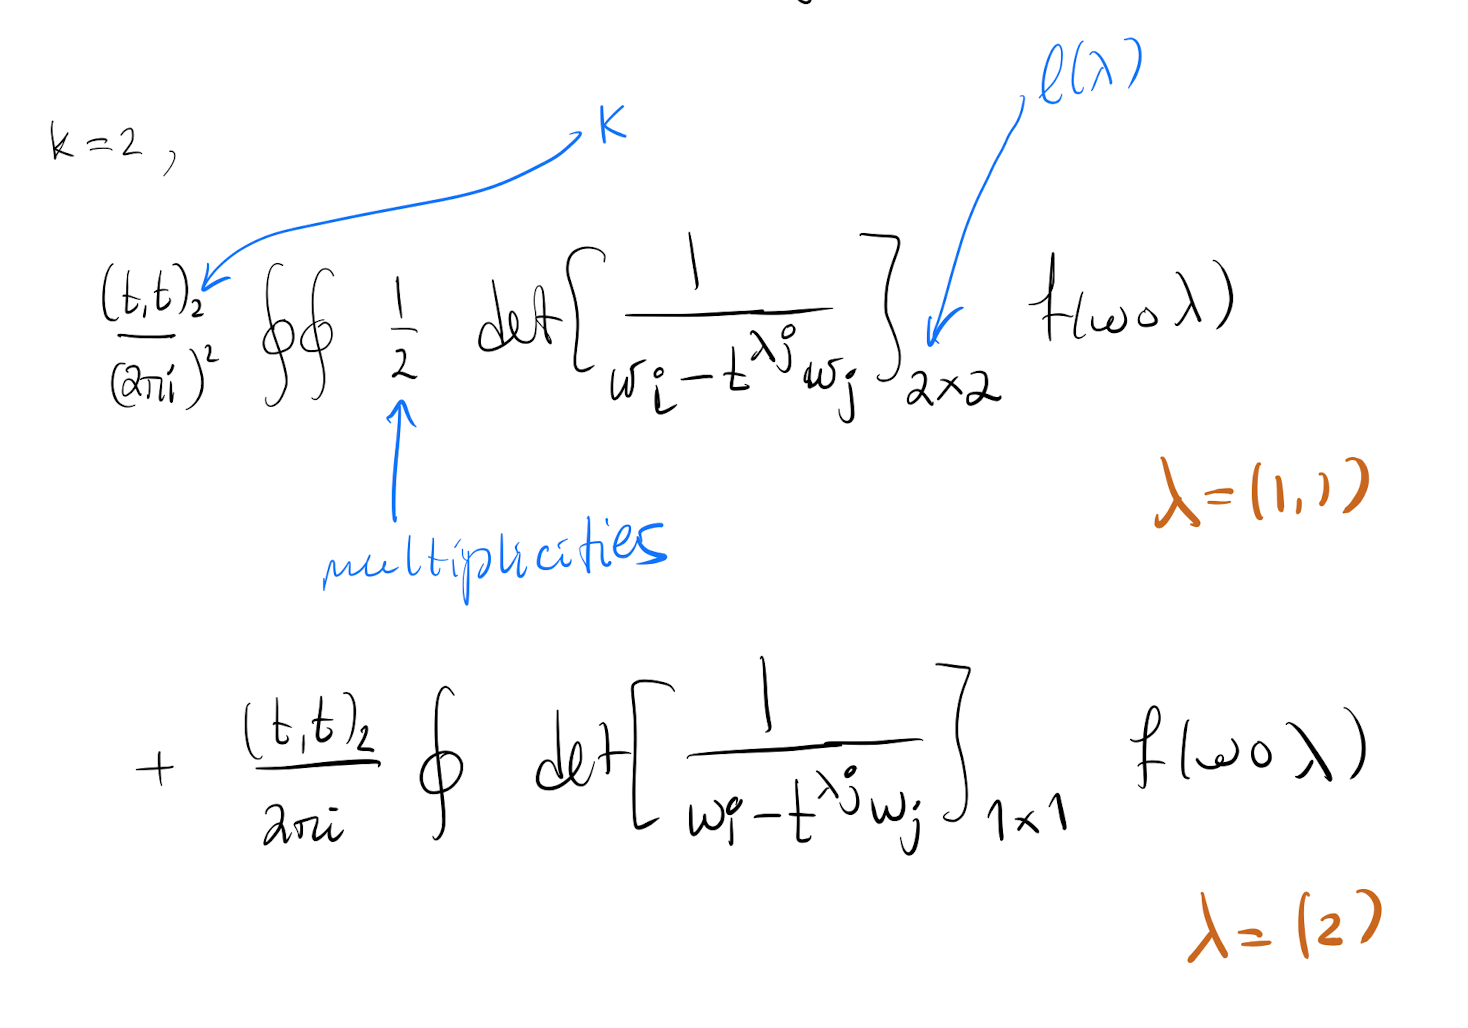 ℓ(λ)
K
k=2,
(t,t)₂/(2πi)² ∮∮ 1/2 det[1/(w_i − t^{λ_j} w_j)]_{2×2} f(w∘λ)
λ=(1,1)
multiplicities
+ (t,t)₂/2πi ∮ det[1/(w_i − t^{λ_j} w_j)]_{1×1} f(w∘λ)
λ=(2)